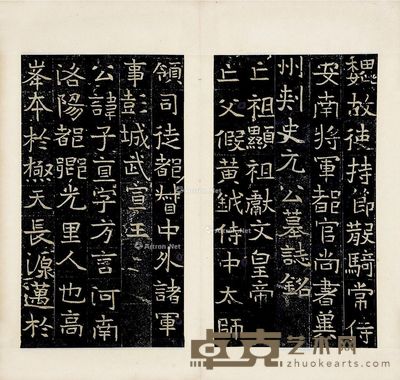 魏故使持節散騎常侍
安南將軍都官尚書冀
州刺史元公墓誌銘
亡祖顯祖獻文皇帝
亡父假黃鉞侍中太師
領司徒都督中外諸軍
事彭城武宣王
公諱子直字方言河南
洛陽都鄉光里人也高
峯本於極天長源邁於
Artron.Net
Artron.Net
卓克艺术网
zhuokearts.com